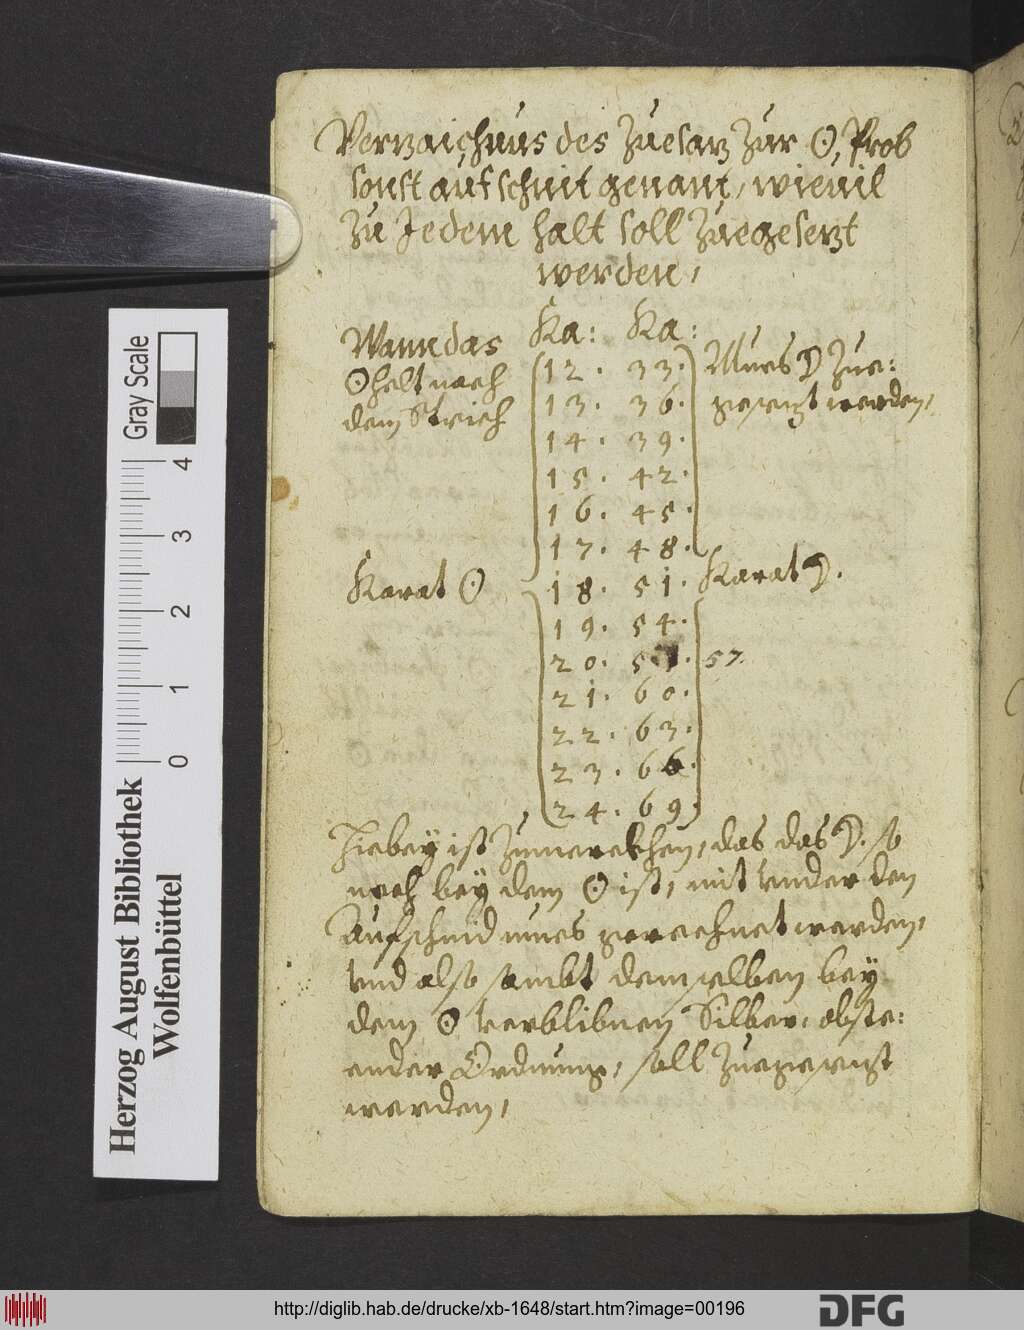 Verzaichnus des Zuesatz Zur ☉, Prob
sonst aufschnit genant, wieuil
Zu Jedem halt soll Zuegesetzt
werden,
Ka: Ka:
Wann das
☉ helt nach
dem Strich
12. 33.
13. 36.
14. 39.
15. 42.
16. 45.
17. 48.
18. 51.
19. 54.
20. 57.
21. 60.
22. 63.
23. 66.
24. 69.
Mues ☽ Zue:
gesetzt werden,
Karat ☉
Karat ☽.
Hiebey ist Zumerckhen, das das ☽. so
noch bey dem ☉ ist, mit vnder den
Aufschnid mues gerechnet werden,
vnd also sambt demselben bey
dem ☉ verblibnen Silber, obste:
ender Ordnung, soll Zuegesetzt
werden,
Gray Scale
4
3
2
1
0
Herzog August Bibliothek
Wolfenbüttel
http://diglib.hab.de/drucke/xb-1648/start.htm?image=00196
DFG